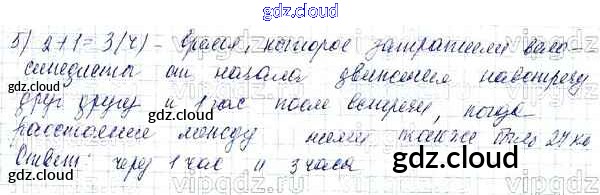 gdz.cloud
5) 2+1=3(ч) - время, которое затратили вело-
gdz.cloud
синедисты от начала движения навстречу
gdz.cloud
друг другу и 1 час после встречи, когда
gdz.cloud
расстояние между ними также было 27 км
gdz.cloud
Ответ: через 1 час и 3 часа
gdz.cloud
vipgdz